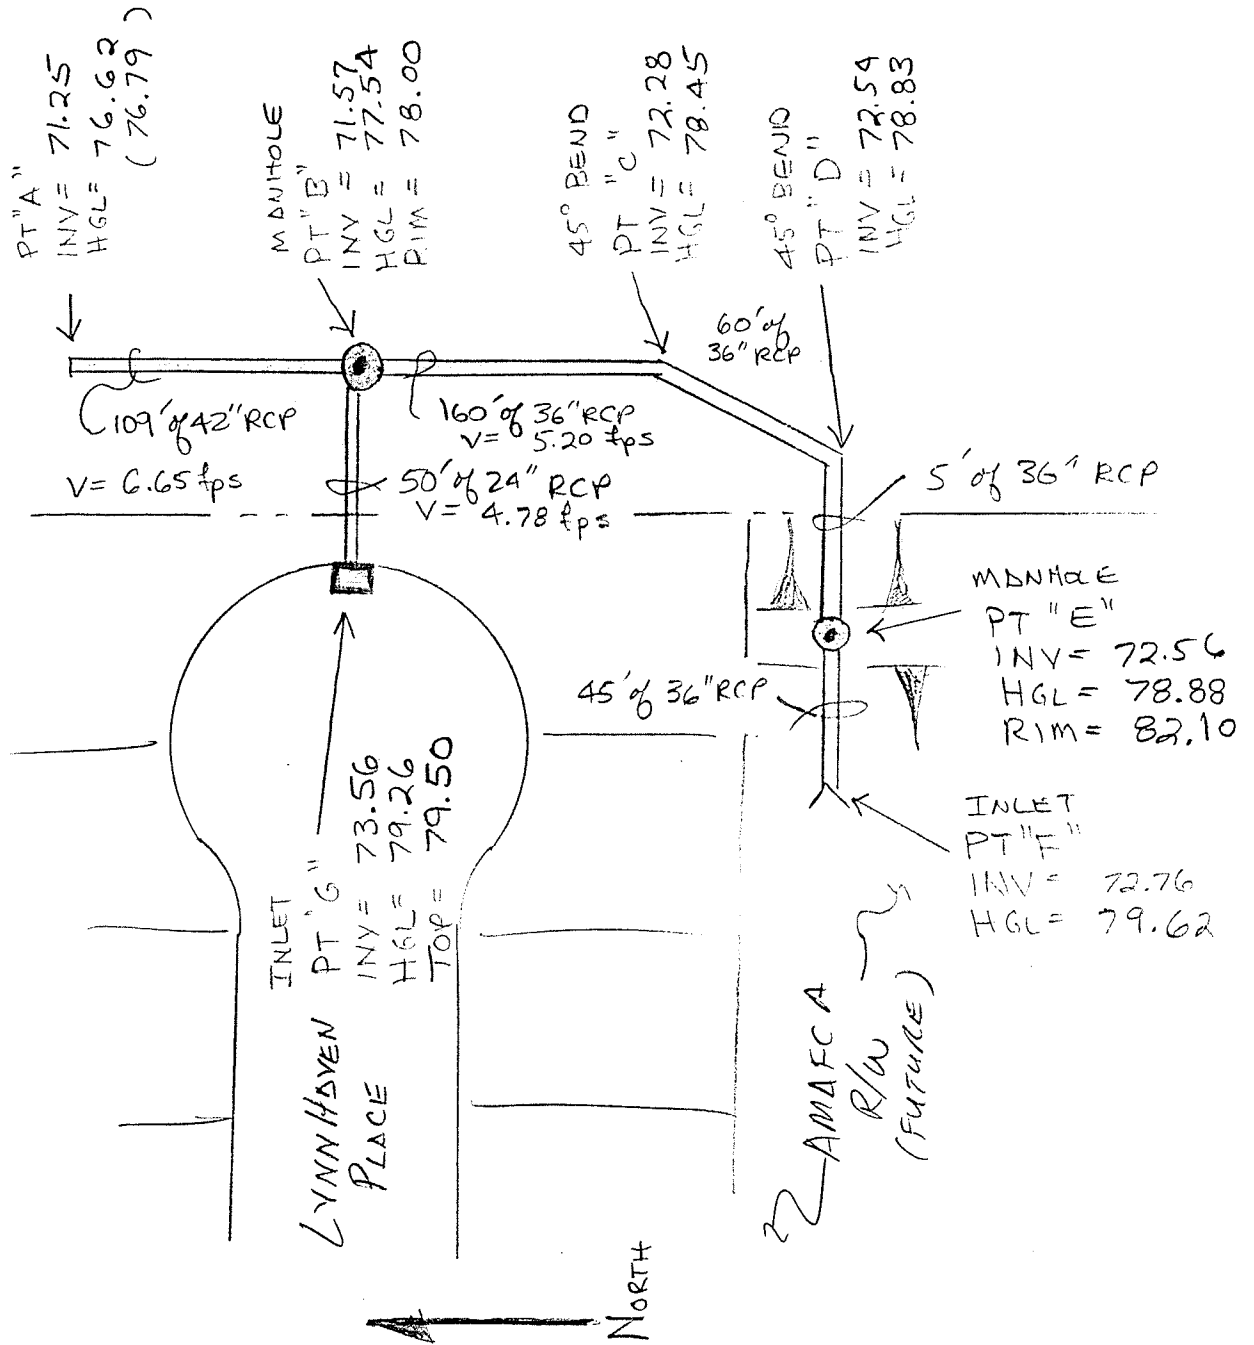 PT "A"
INV = 71.25
HGL = 76.62
(76.79)
MANHOLE
PT "B"
INV = 71.57
HGL = 77.54
RIM = 78.00
45° BEND
PT "C"
INV = 72.28
HGL = 78.45
45° BEND
PT "D"
INV = 72.54
HGL = 78.83
60' of
36" RCP
109' of 42" RCP
V= 6.65 fps
160' of 36" RCP
V= 5.20 fps
50' of 24" RCP
V= 4.78 fps
5' of 36" RCP
MANHOLE
PT "E"
INV = 72.56
HGL = 78.88
RIM = 82.10
45' of 36" RCP
INLET
PT "F"
INV = 72.76
HGL = 79.62
INLET
PT "G"
INV = 73.56
HGL = 79.26
TOP = 79.50
LYNNHAVEN
PLACE
AMAFCA
R/W
(FUTURE)
NORTH